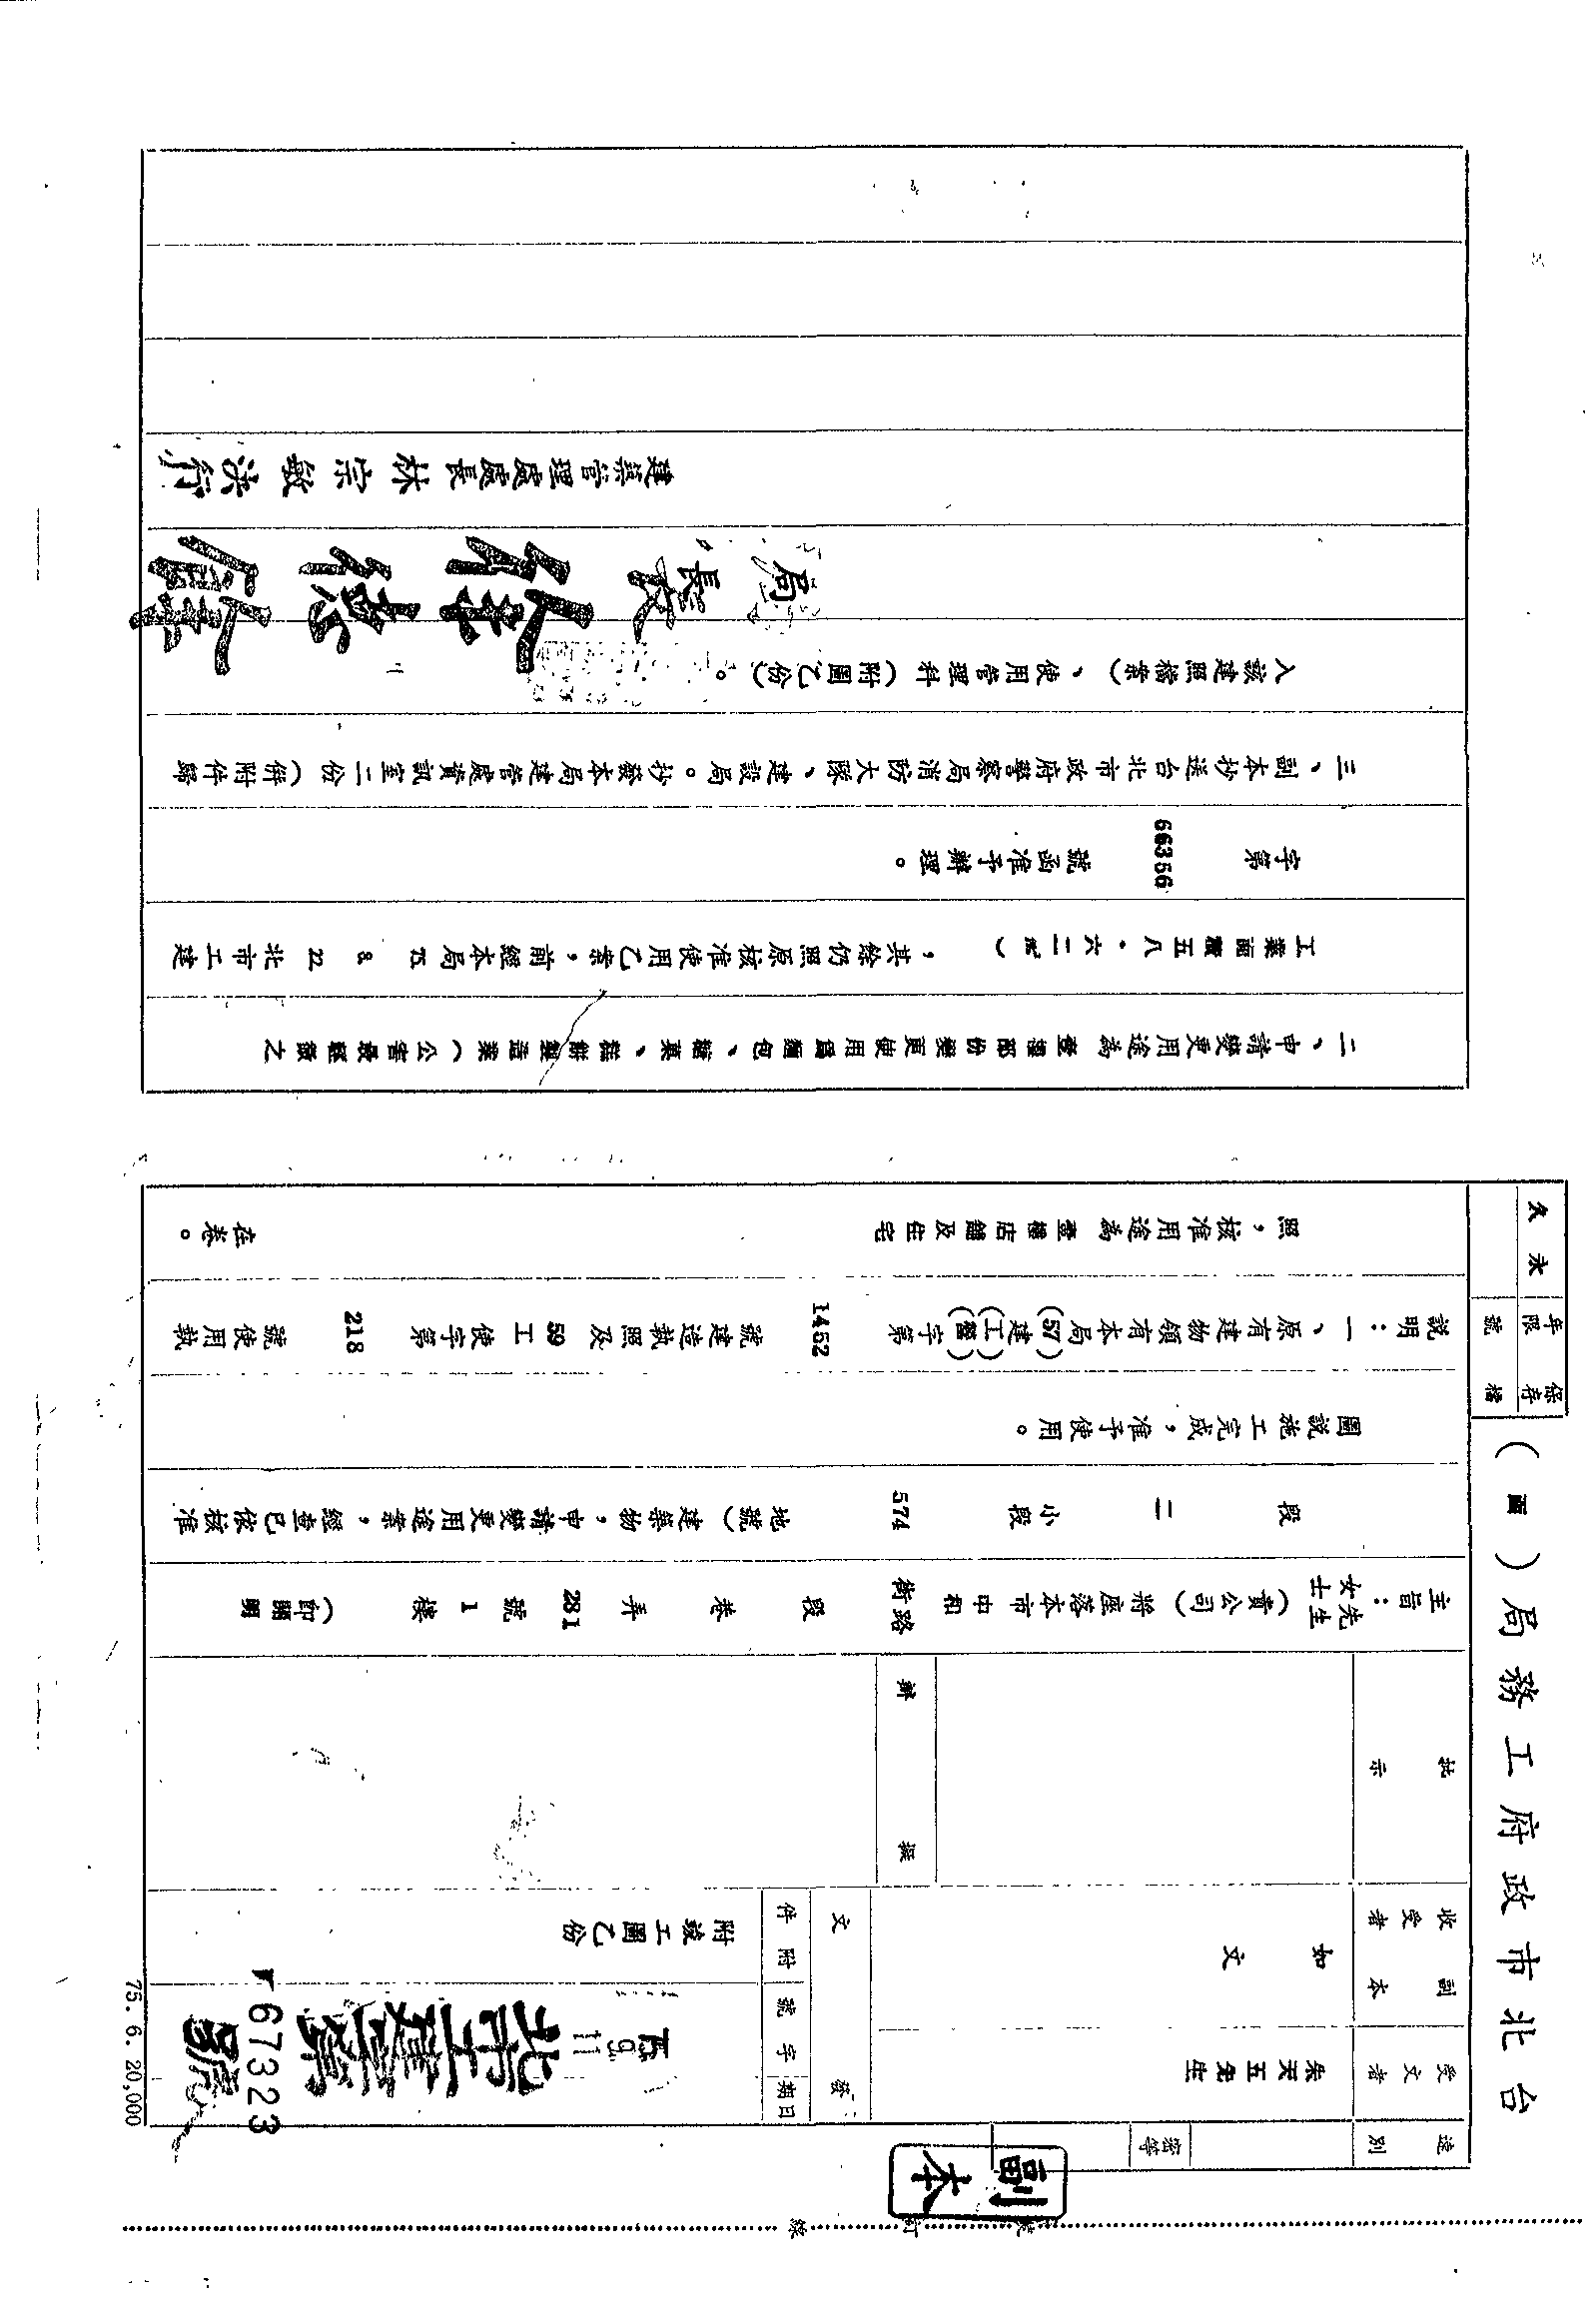 台北市政府工務局（函）
保存年限 永久
檔號
速別
密等
副本
受文者 朱天五先生
副本收受者 如文
批示
擬辦
發文
日期 75 9 11
字號 北市工建字第67323號
附件 附竣工圖乙份
主旨：先生女士（貴公司）將座落本市中和街路 段 巷 弄 281 號 1 樓（即
段 二 小段 574 地號）建築物，申請變更用途案，經查已依核准
圖說施工完成，准予使用。
說明：一、原有建物領有本局(57)建(工)(營)字第 1452 號建造執照及 59 工使字第 218 號使用執
照，核准用途為壹層店舖及住宅 在卷。
二、申請變更用途為壹層部份變更使用為麵包、糖菓、糕餅製造業（公害最輕微之
工業面積五八．六二㎡），其餘仍照原核准使用乙案，前經本局 75 8 22 北市工建
字第 66356 號函准予辦理。
三、副本抄送台北市政府警察局消防大隊、建設局。抄發本局建管處資訊室二份（併附件歸
入該建照檔案）、使用管理科（附圖乙份）。
局長
建築管理處處長林宗敏決行
75. 6. 20,000
裝 訂 線